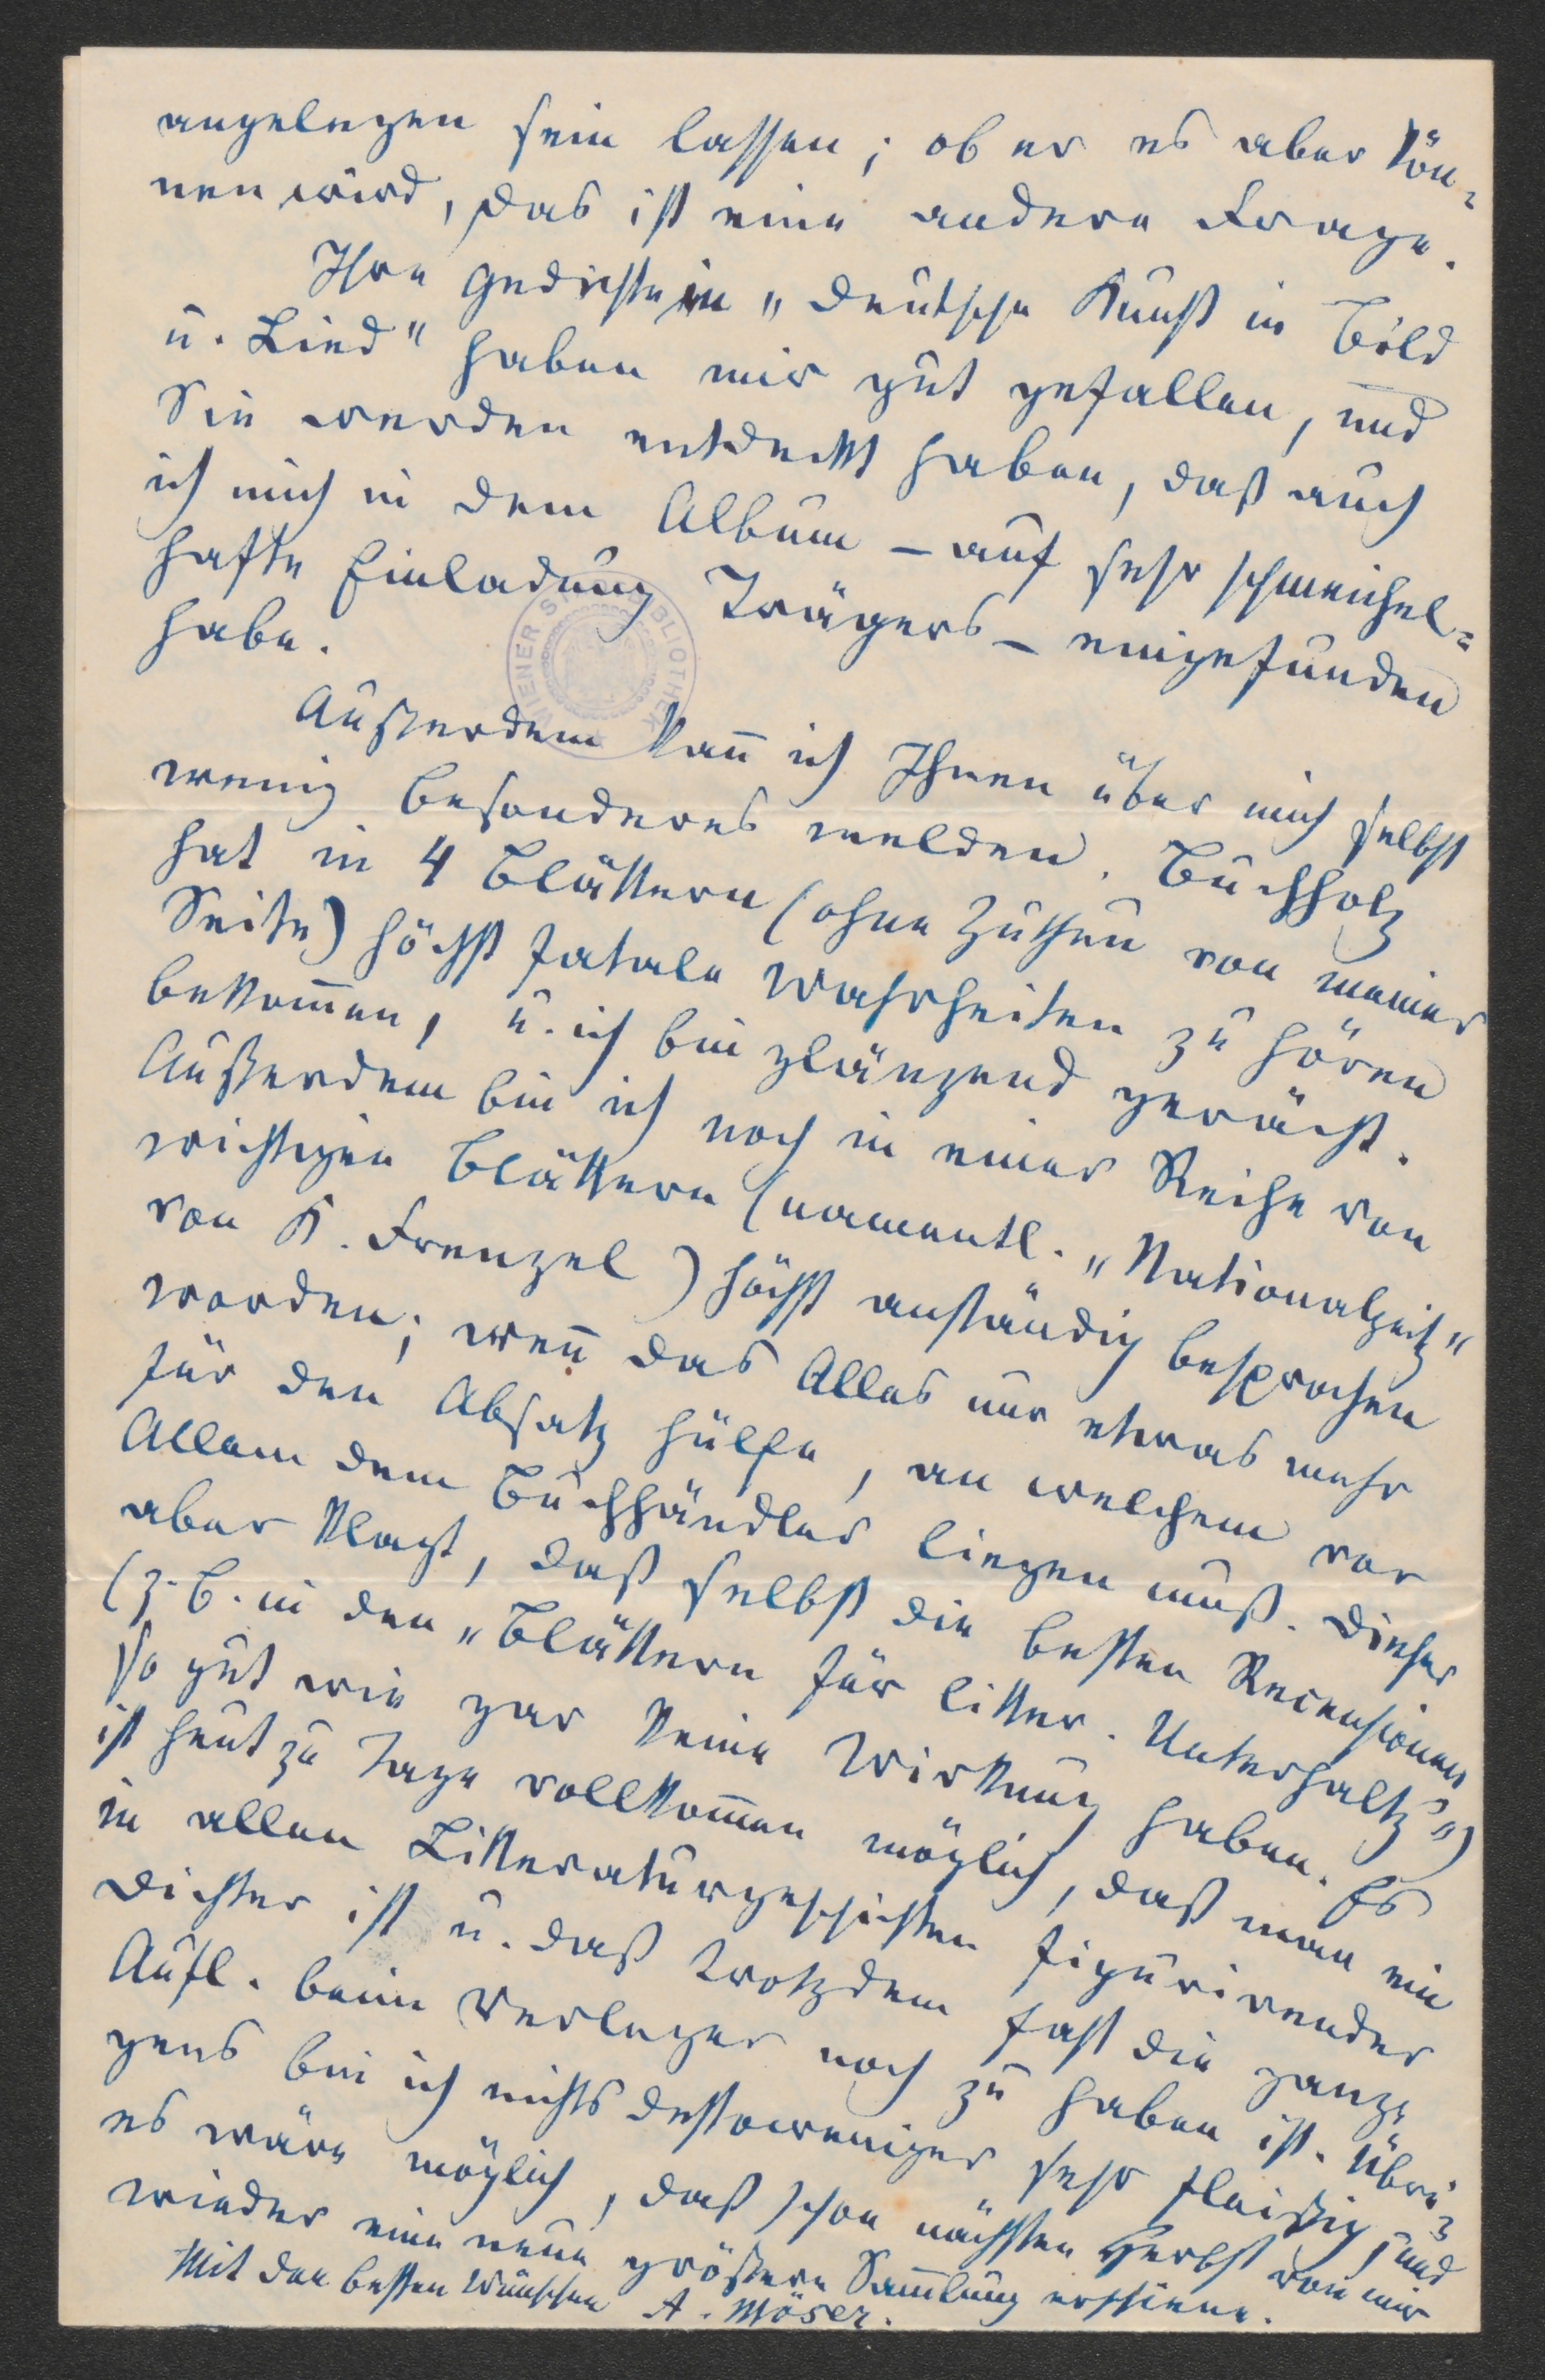 angelegen sein lassen; ob er es aber kön-
nen wird, das ist eine andere Frage.
Ihre Gedichte in „Deutsche Kunst in Bild
u. Lied" haben mir gut gefallen, und
Sie werden entdeckt haben, daß auch
ich mich in dem Album – auf sehr schmeichel-
hafte Einladung Trägers – eingefunden
habe.
WIENER STADTBIBLIOTHEK
Außerdem kan̄ ich Ihnen über mich selbst
wenig besonderes melden. Buchholz
hat in 4 Blättern (ohne Zuthun von meiner
Seite) höchst fatale Wahrheiten zu hören
bekom̄en, u. ich bin glänzend gerächt.
Außerdem bin ich noch in einer Reihe von
wichtigen Blättern (namentl. „Nationalzeitg"
von K. Frenzel) höchst anständig besprochen
worden; wen̄ das Alles nur etwas mehr
für den Absatz hülfe, an welchem vor
Allem dem Buchhändler liegen muß. Dieser
aber klagt, daß selbst die besten Recensionen
(z. B. in den „Blättern für litter. Unterhaltg")
so gut wie gar keine Wirkung haben. Es
ist heut zu Tage vollkom̄en möglich, daß man ein
in allen Litteraturgeschichten figurirender
Dichter ist u. daß trotzdem fast die ganze
Aufl. beim Verleger noch zu haben ist. Übri-
gens bin ich nichts destoweniger sehr fleißig, und
es wäre möglich, daß schon nächsten Herbst von mir
wieder eine neue größere Sam̄lung erschiene.
Mit den besten Wünschen A. Möser.